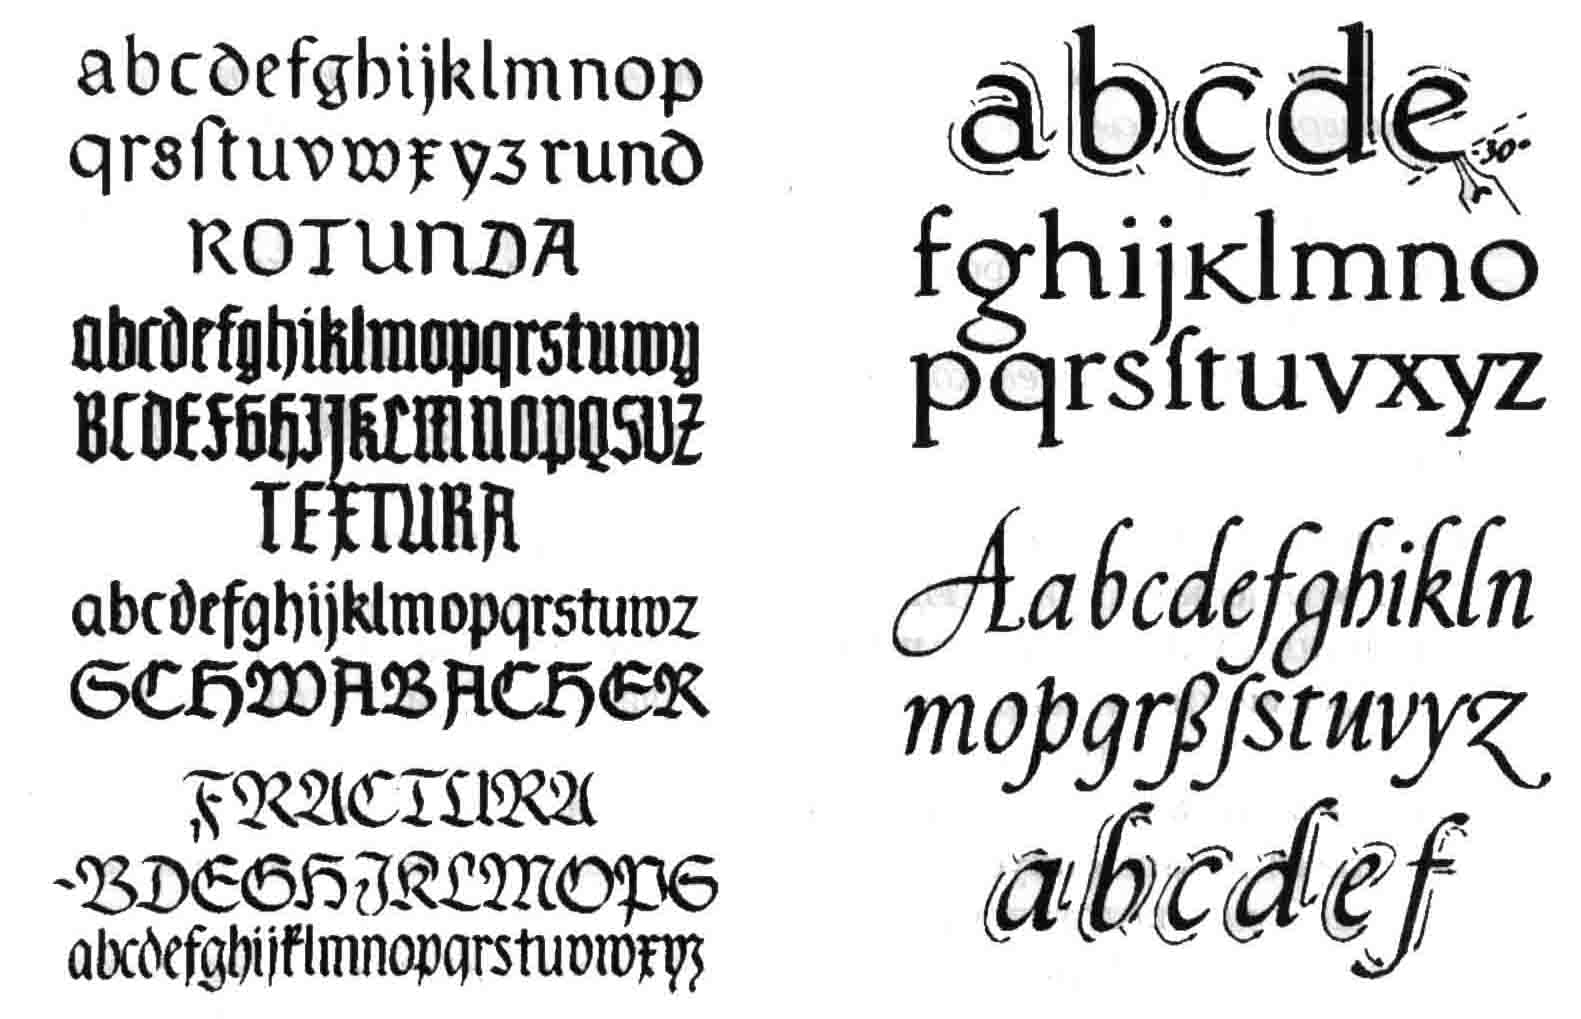 abcdefghijklmnop
qrsſtuvwxyz rund
ROTUNDA
abcdefghiklmopqrstuwy
BCDEFGHIJKLMNOPQSUZ
TEXTURA
abcdefghijklmopqrstuwz
SCHWABACHER
FRACTURA
-BDEGHJKLMOPS
abcdefghijklmnopqrstuvwxyz
abcde
30°
fghijklmno
pqrsſtuvxyz
Aabcdefghikln
mopqrßſstuvyz
abcdef